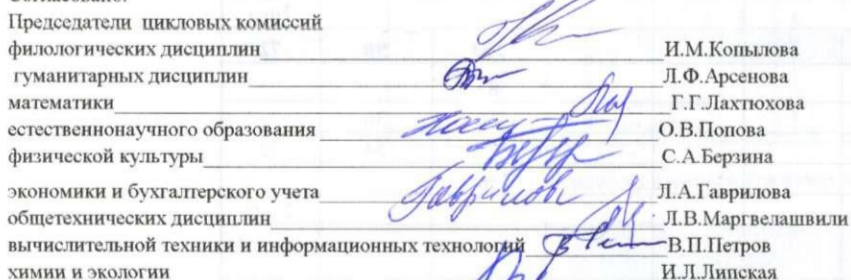 Председатели цикловых комиссий
филологических дисциплин И.М.Копылова
гуманитарных дисциплин Л.Ф.Арсенова
математики Г.Г.Лахтюхова
естественнонаучного образования О.В.Попова
физической культуры С.А.Берзина
экономики и бухгалтерского учета Гаврилова Л.А.Гаврилова
общетехнических дисциплин Л.В.Маргвелашвили
вычислительной техники и информационных технологий В.П.Петров
химии и экологии И.Л.Липская